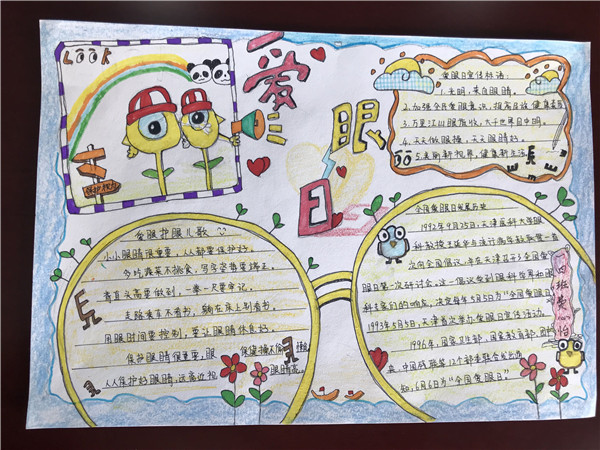 LOOK
保护视力
爱眼日
爱眼日宣传标语
1.光明,来自眼睛。
2.加强全民爱眼意识,提高民族健康素质
3.万里江山眼底收,大千世界目中明。
4.天天做眼操,天天眼睛好。
5.美丽新视界,健康新生活
爱眼护眼儿歌
小小眼睛很重要,人人都要保护好。
多吃蔬菜不挑食,写字姿势要端正。
看直头高里做到,一拳一尺要牢记。
走路乘车不看书,躺在床上别看书。
用眼时间要控制,要让眼睛休息好。
保护眼睛很重要,眼
保健操不偷懒
眼睛亮。
人人保护好眼睛,远离近视
全国爱眼日发展历史
1992年9月25日,天津医科大学眼
科教授王延华与流行病学教授耿贯一首
次向全国倡议,年在天津召开了全国爱
眼日第一次研讨会。这一倡议受到眼科专家和眼
科专家们的响应,决定每年5月5日为“全国爱眼日”
1993年5月5日,天津首次举办爱眼日宣传活动
1996年,国家卫生部、国家教育部、团中
央、中国残联等12个部委联合发出通
知,6月6日为“全国爱眼日”。
四班
怡